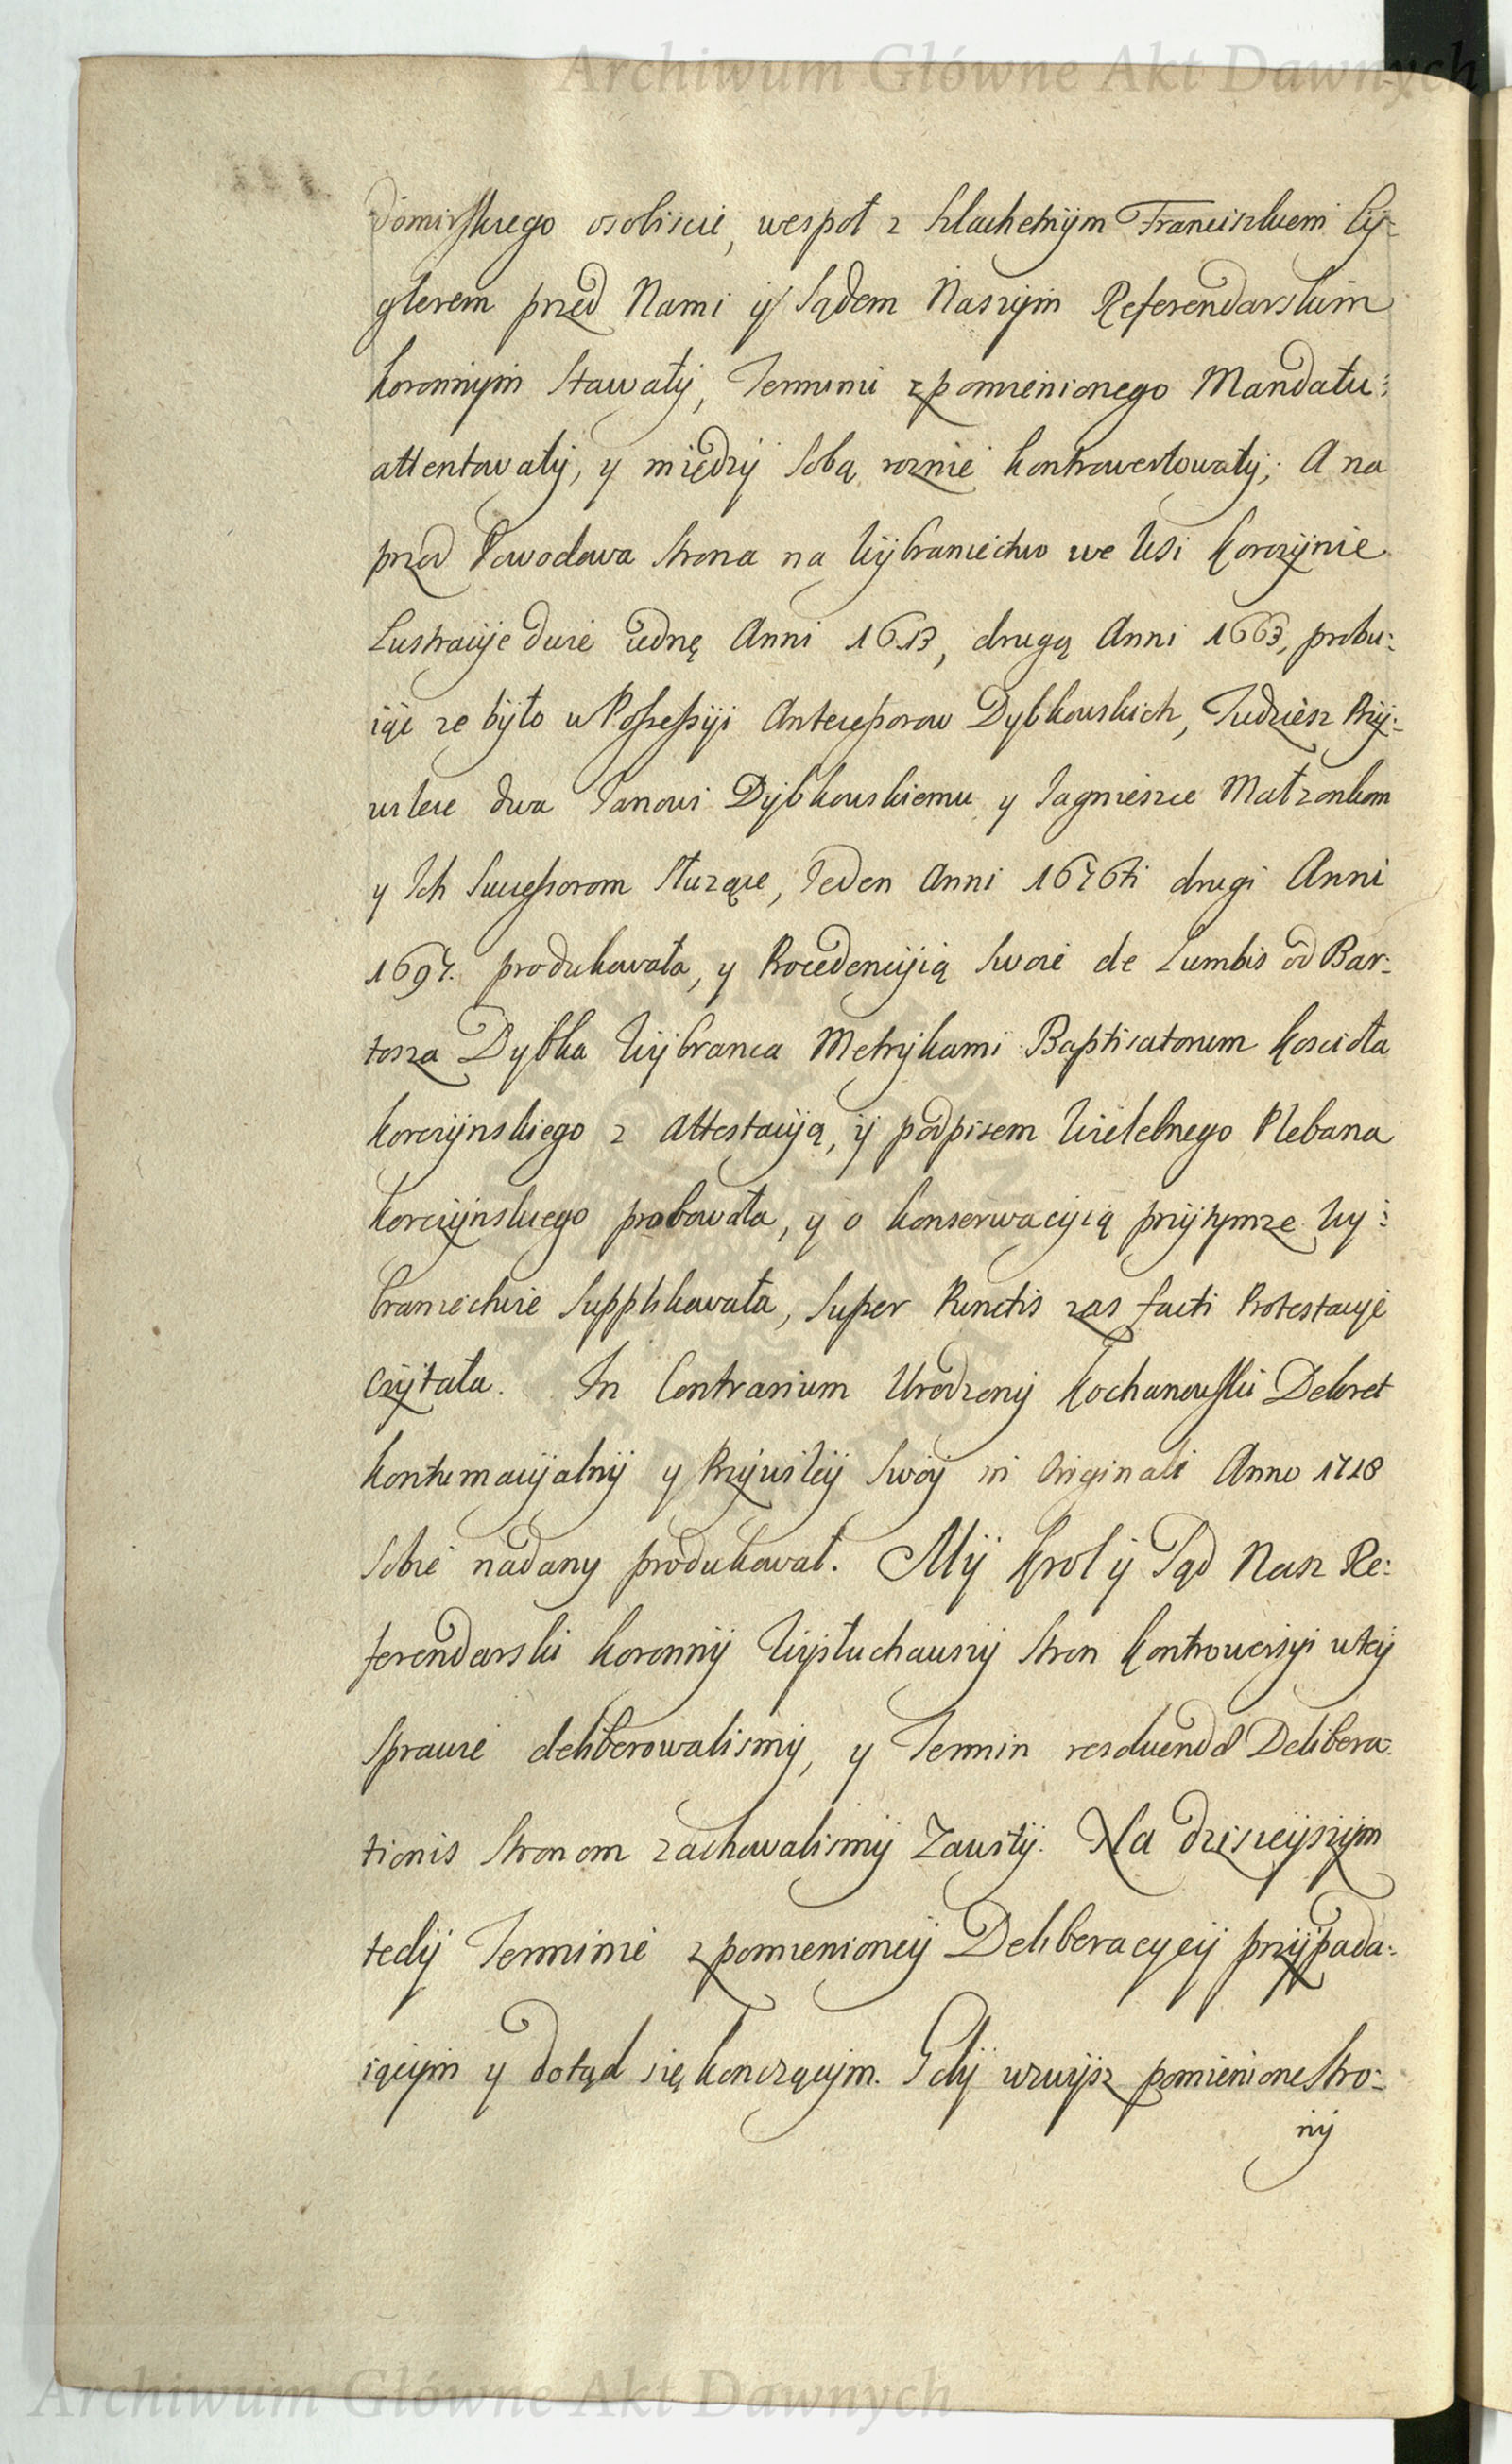 Archiwum Główne Akt Dawnych
domirskiego osoliscie, wespoł z Szlachetnÿm Franciszkiem Cÿ-
glerem przed Nami ÿ Sądem Naszÿm Referendarskim
koronnÿm Stawałÿ, Terminu zpomienionego Mandatu:
attentowałÿ, y międzÿ Sobą roznie kontrowertowałÿ; A na
przod Powodowa Strona na Wÿbraniectwo we Wsi Korczÿnie
Lustracÿe dwie iednę Anni 1613, drugą Anni 1663, probu:
iąc ze bÿło w Possessÿi Antecessorow Dybkowskich, Tudziesz Przÿ:
wileie dwa Janowi Dÿbkowskiemu y Jagnieszce Małzonkom
y Ich Successorom słuzące, Jeden Anni 1676ti drugi Anni
1697. produkowała, y Procedencÿią Swoię de Lumbis od Bar:
tosza Dybka Wÿbranca Metrÿkami Baptisatorum Koscioła
Korczÿnskiego z Attestacÿą, ÿ podpisem Wielebnego Plebana
Korczÿnskiego probowała, y o konserwacyią przÿtymze Wy:
braniectwie Supplikowała, Super Punctis zas facti Protestacÿe
Czÿtała. In Contrarium Urodzonÿ Kochanowski Dekret
kontumacÿalnÿ y Przÿwileÿ Swoÿ in Originali Anno 1728
Sobie nadany produkował. Mÿ Krol ÿ Sąd Nasz Re:
ferendarski koronnÿ Wÿsłuchawszÿ Stron Kontrowersÿi wteÿ
Sprawie deliberowalismÿ, y Termin resolvendæ Delibera:
tionis Stronom zachowalismÿ Zawitÿ. Na dzisieÿszÿm
tedÿ Terminie zpomienioneÿ Deliberacyeÿ przÿpada:
iącÿm y dotąd się konczącÿm. Gdÿ wzwÿsz pomienione Stro:
nÿ
Archiwum Główne Akt Dawnych